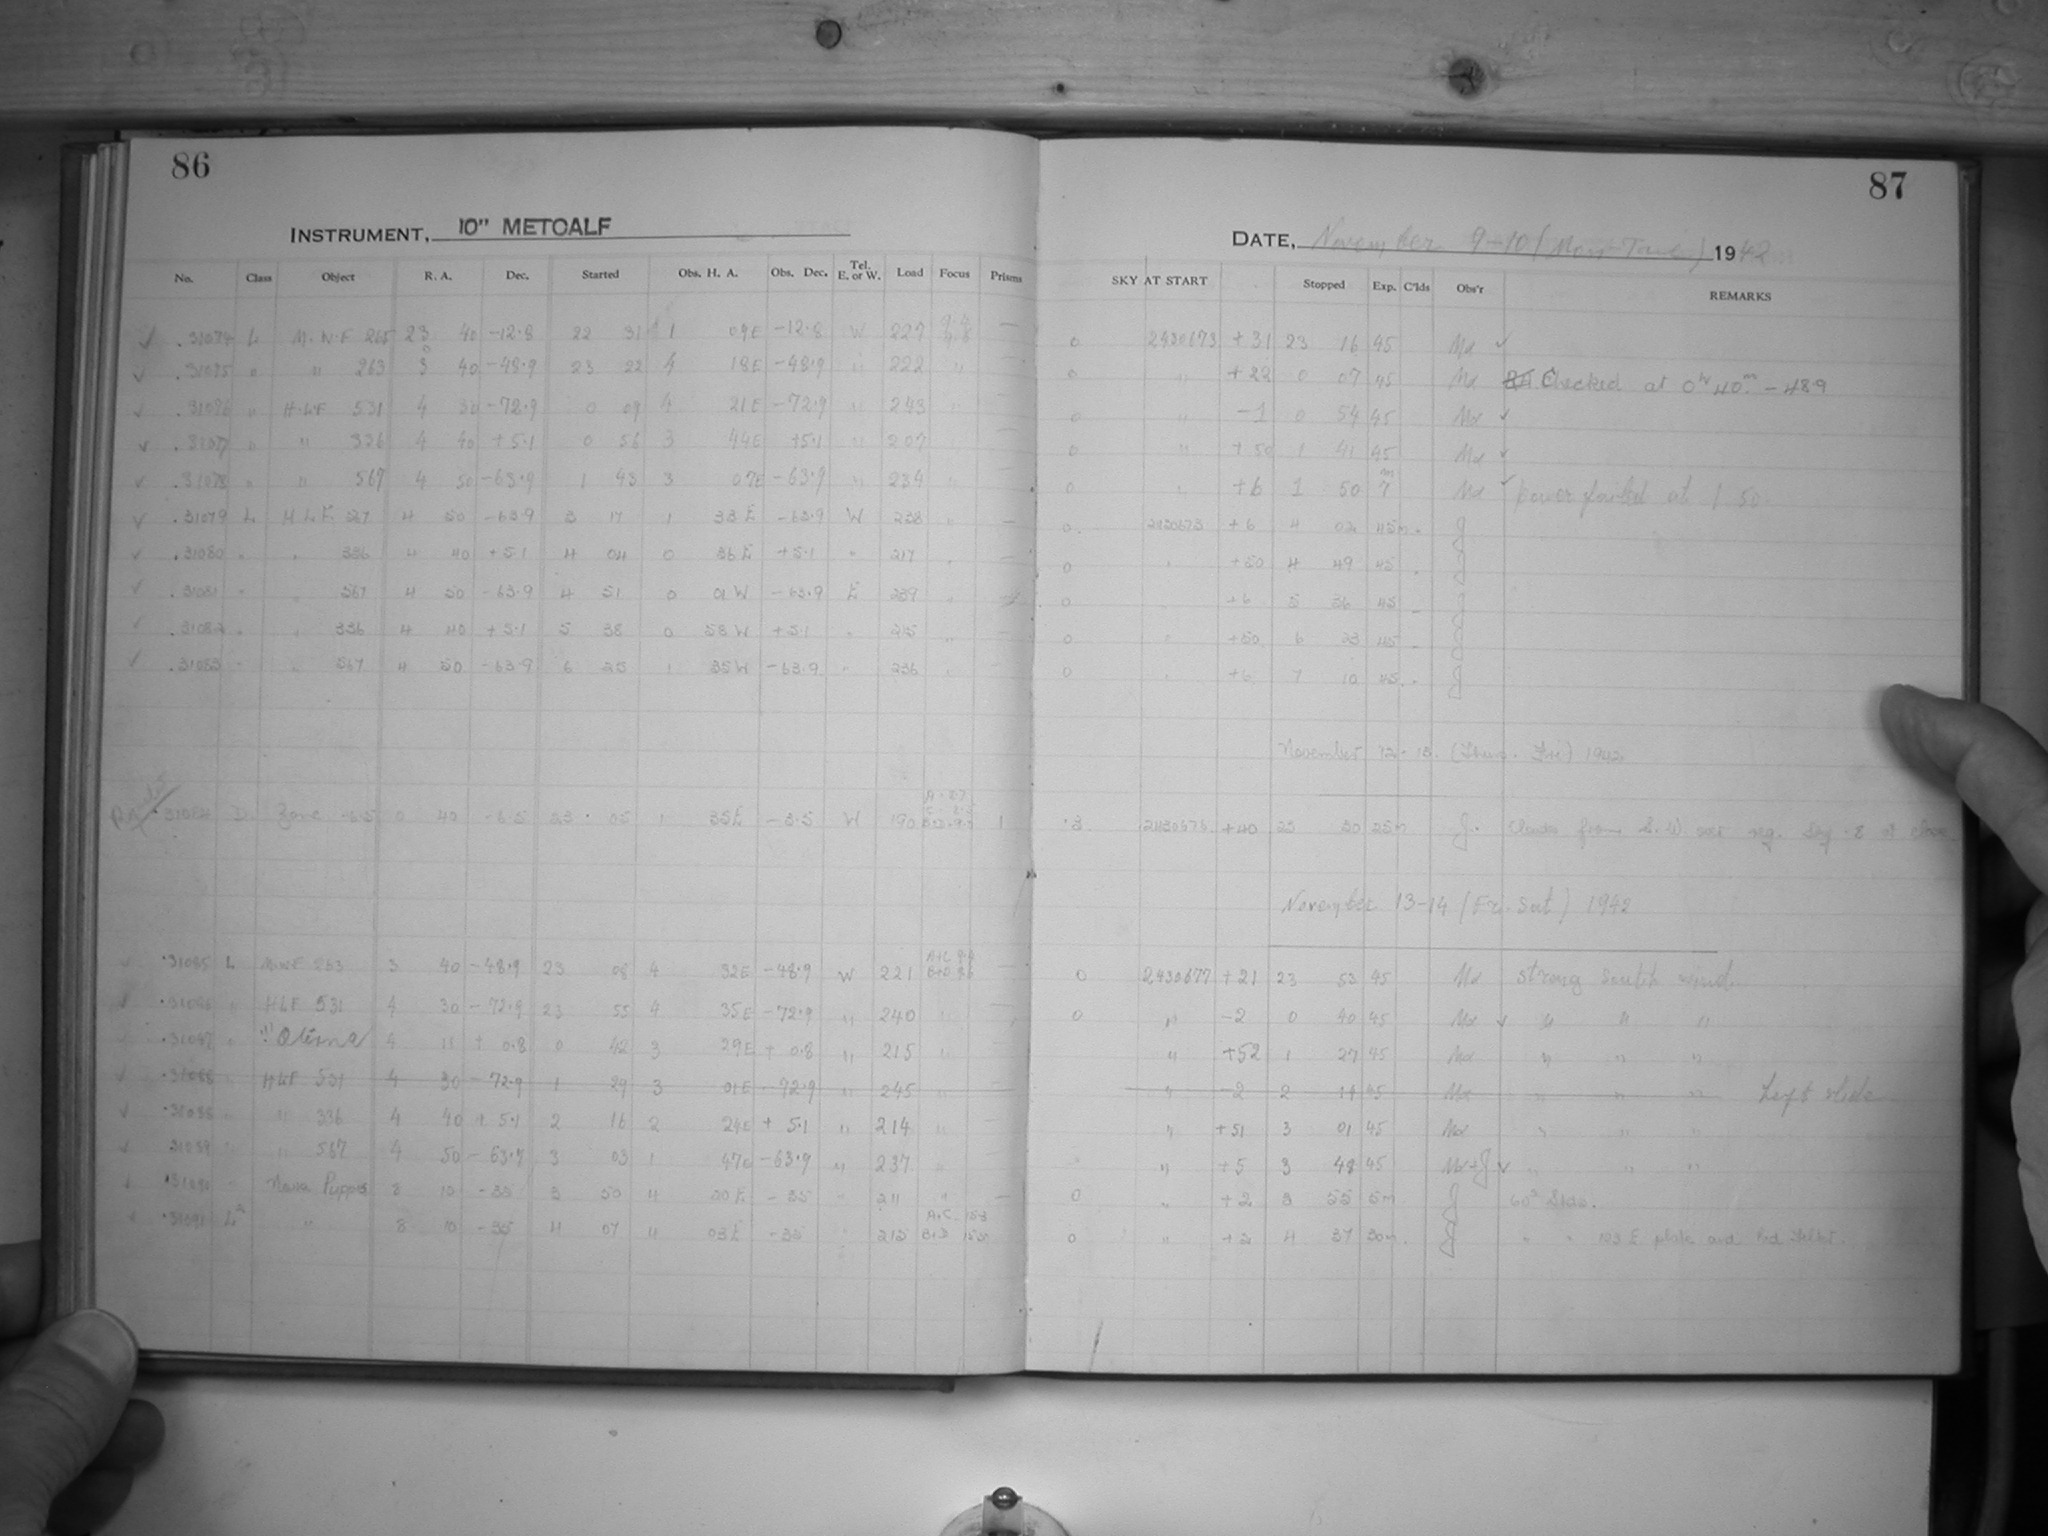 86
INSTRUMENT, 10" METCALF
No. Class Object R. A. Dec. Started Obs. H. A. Obs. Dec. Tel. E. or W. Load Focus Prisms
.31074 L M.N.F 265 23 40 -12.8 22 31 1 09E -12.8 W 227 —
.31075 " " 263 3 40 -48.9 23 22 4 18E -48.9 " 222 "
.31076 " H.L.F 531 4 30 -72.9 0 09 4 21E -72.9 " 243
.31077 " " 336 4 40 +5.1 0 56 3 44E +5.1 " 207
.31078 " " 567 4 50 -63.9 1 43 3 07E -63.9 " 234
.31079 L H L F. 567 4 50 -63.9 3 17 1 33E -63.9 W 238
.31080 " " 336 4 40 +5.1 4 04 0 36E +5.1 " 217
.31081 " " 567 4 50 -63.9 4 51 0 01W -63.9 E 239
.31082 " " 336 4 40 +5.1 5 38 0 58W +5.1 " 215
.31083 " " 567 4 50 -63.9 6 25 1 35W -63.9 " 236
.31084 D. Zone -6.5 0 40 -6.5 23 05 1 35E -3.5 W 190 1
.31085 L M.N.F 263 3 40 -48.9 23 08 4 32E -48.9 W 221
.31086 " HLF 531 4 30 -72.9 23 55 4 35E -72.9 " 240
.31087 " Oterma 4 11 + 0.8 0 42 3 29E + 0.8 " 215
.31088 HLF 531 4 30 -72.9 1 29 3 01E -72.9 " 245
.31088 " " 336 4 40 + 5.1 2 16 2 24E + 5.1 " 214
.31089 " " 567 4 50 -63.9 3 03 1 47E -63.9 " 237
.31090 " Nova Puppis 8 10 -35 3 50 4 20E -35 " 211 "
.31091 L " 8 10 -35 4 07 4 03E -35 " 215
87
DATE, November 9-10 (Mon-Tues) 1942
SKY AT START Stopped Exp. C'lds Obs'r REMARKS
0 2430673 +31 23 16 45 Md
0 " +22 0 07 45 Md Checked at 0h 40m -48.9
0 " -1 0 54 45 Md
0 " +50 1 41 45 Md
0 " +6 1 50 7m Md power failed at 1 50.
0 2430673 +6 4 02 45m. J
0 " +50 4 49 45 J
0 +6 5 36 45 J
0 " +50 6 23 45 J
0 " +6 7 10 45 J
November 12-13. (Thurs. Fri) 1942
.3 2430676 +40 23 30 25m J. Clouds from S.W
November 13-14 (Fri. Sat) 1942
0 2430677 +21 23 53 45 Md strong south wind.
0 " -2 0 40 45 Md " " "
" +52 1 27 45 Md " " "
" -2 2 14 45 Md " " " Left slide
" +51 3 01 45 Md " " "
" +5 3 48 45 Md+J " " "
0 " +2 3 55 5m J 60° Stds.
0 " +2 4 37 30m. J " " 103 E plate and Red Filter.